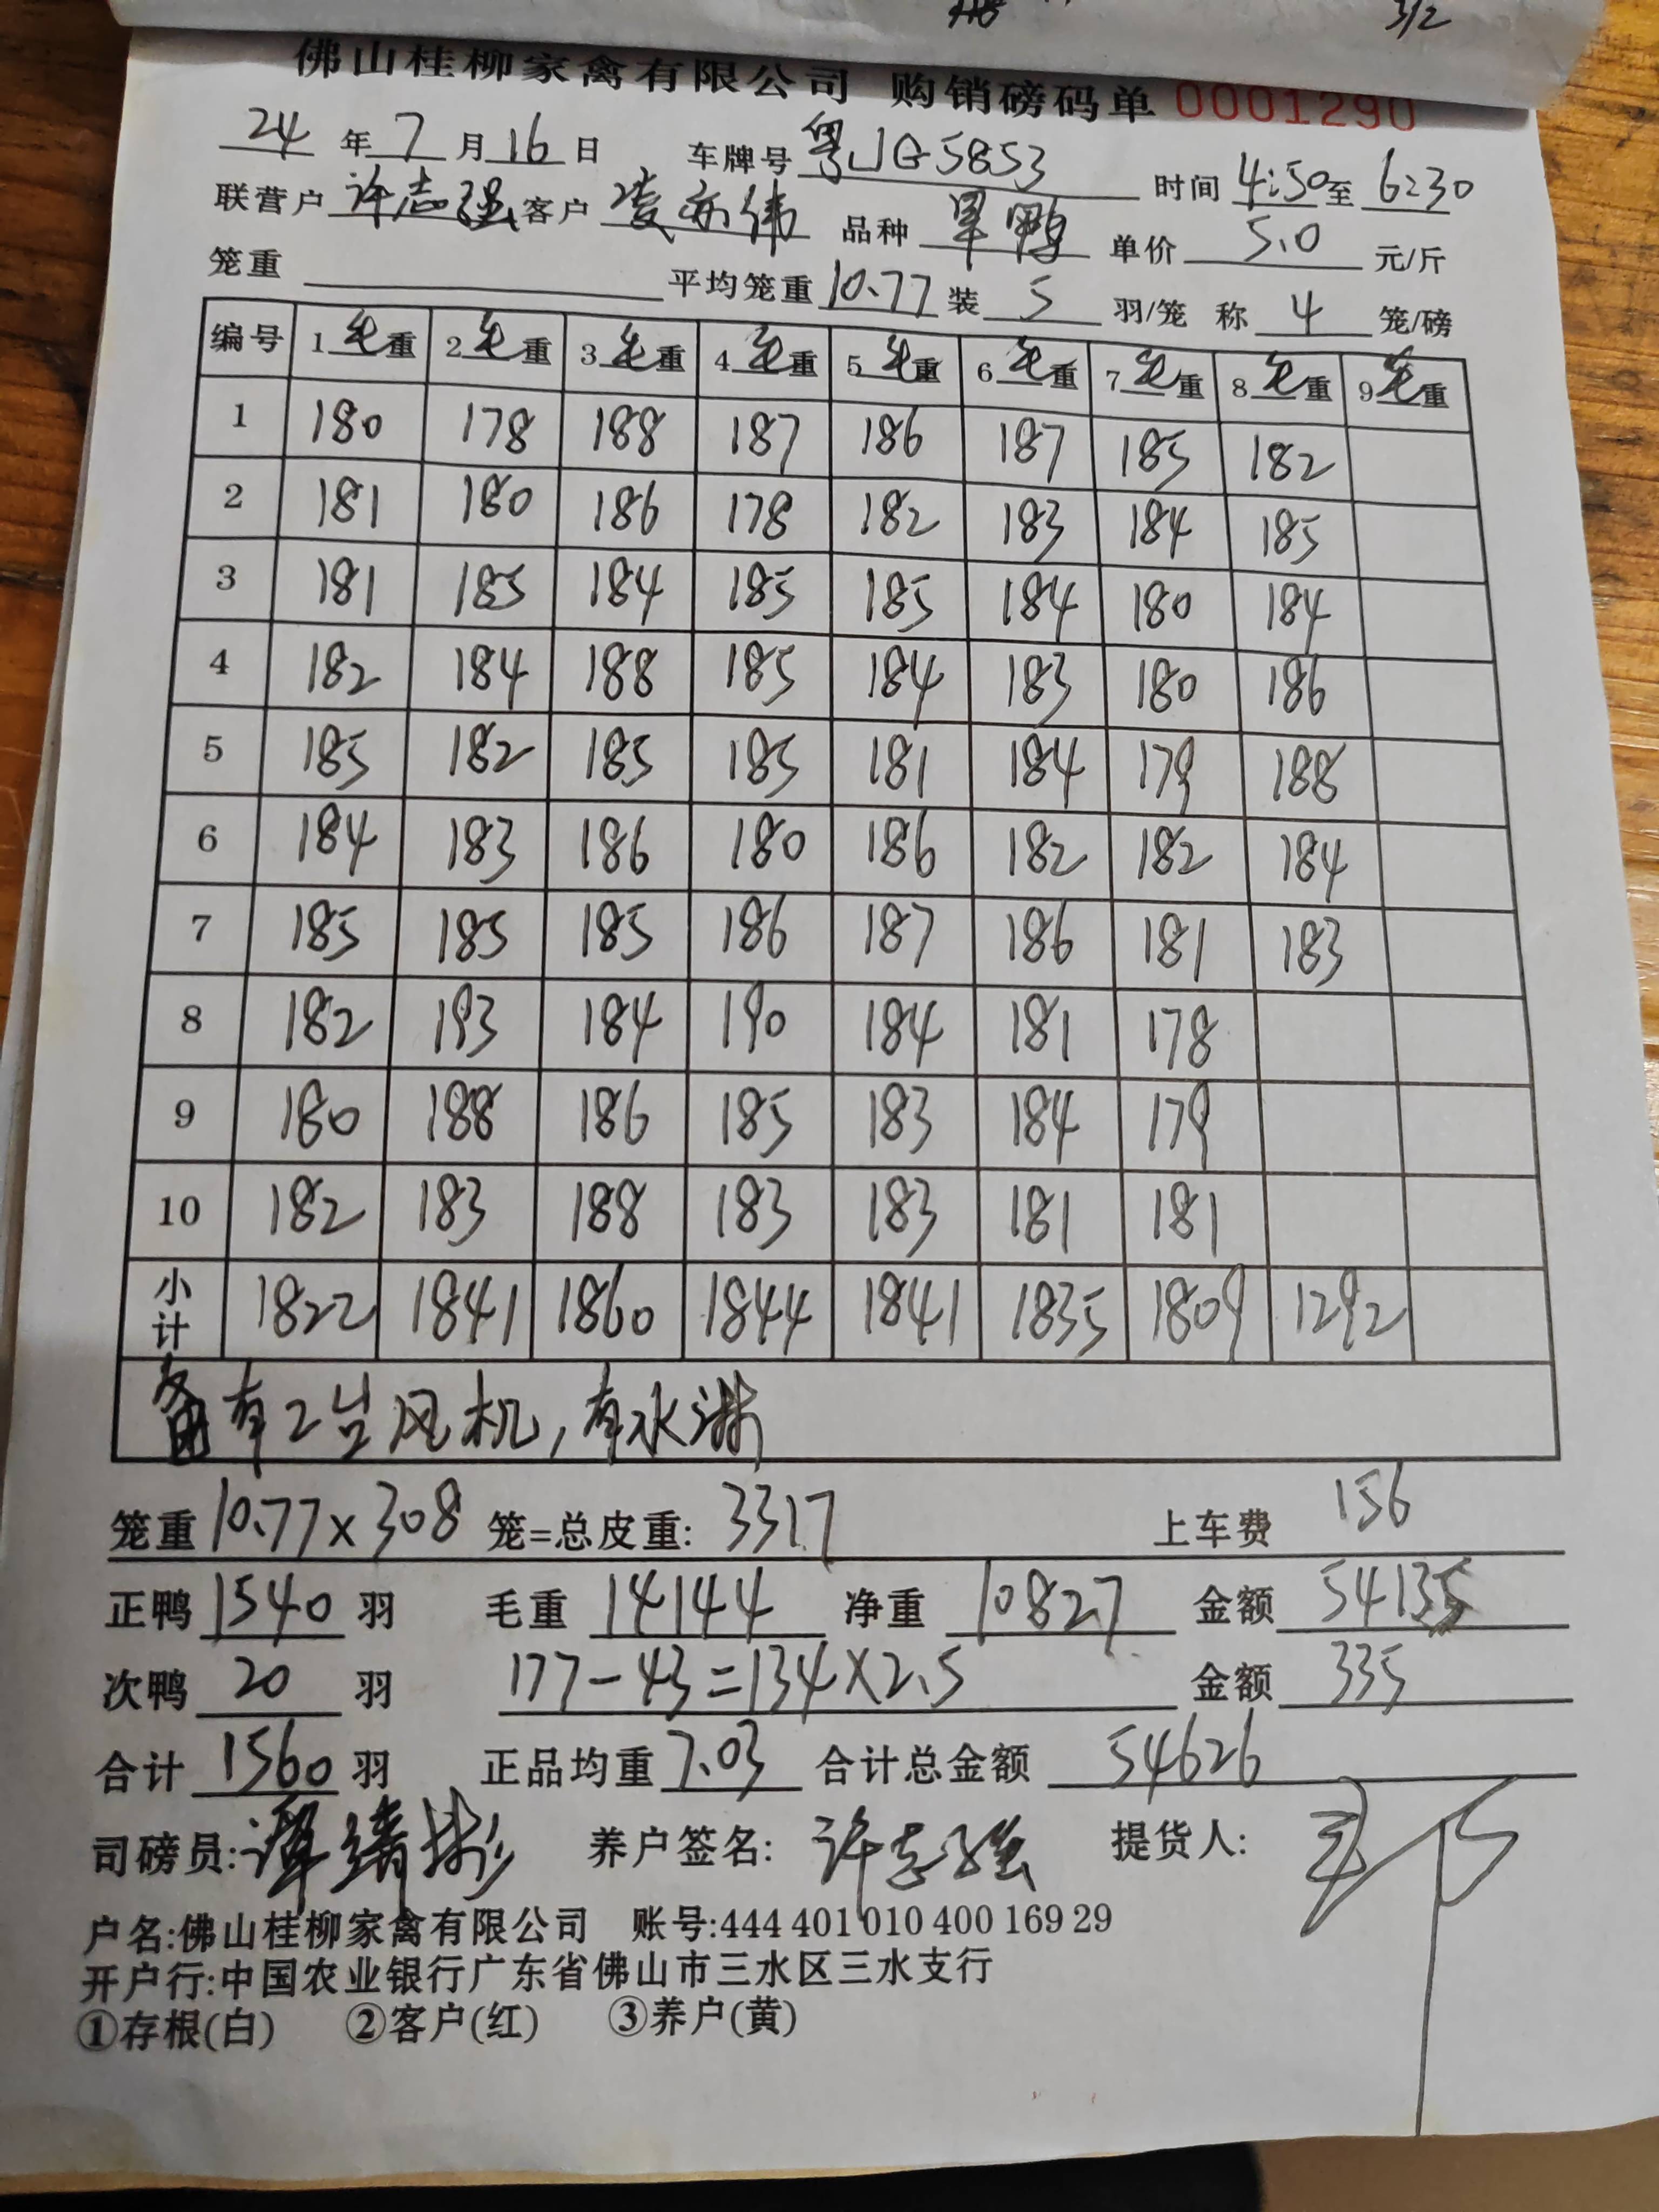 312
佛山桂柳家禽有限公司 购销磅码单 0001290
24 年 7 月 16 日 车牌号 粤JG5853 时间 4:50 至 6:30
联营户 许志强 客户 凌亦伟 品种 旱鸭 单价 5.0 元/斤
笼重 平均笼重 10.77 装 5 羽/笼 称 4 笼/磅
编号 1毛重 2毛重 3毛重 4毛重 5毛重 6毛重 7毛重 8毛重 9毛重
1 180 178 188 187 186 187 185 182
2 181 180 186 178 182 183 184 185
3 181 185 184 185 185 184 180 184
4 182 184 188 185 184 183 180 186
5 185 182 185 185 181 184 179 188
6 184 183 186 180 186 182 182 184
7 185 185 185 186 187 186 181 183
8 182 193 184 190 184 181 178
9 180 188 186 185 183 184 179
10 182 183 188 183 183 181 181
小计 1822 1841 1860 1844 1841 1835 1809 1292
备 有2台风机,有水淋
笼重 10.77×308 笼=总皮重: 3317 上车费 156
正鸭 1540 羽 毛重 14144 净重 10827 金额 54135
次鸭 20 羽 177-43=134×2.5 金额 335
合计 1560 羽 正品均重 7.03 合计总金额 54626
司磅员: 养户签名: 许志强 提货人:
户名:佛山桂柳家禽有限公司 账号:444 401 010 400 169 29
开户行:中国农业银行广东省佛山市三水区三水支行
①存根(白) ②客户(红) ③养户(黄)